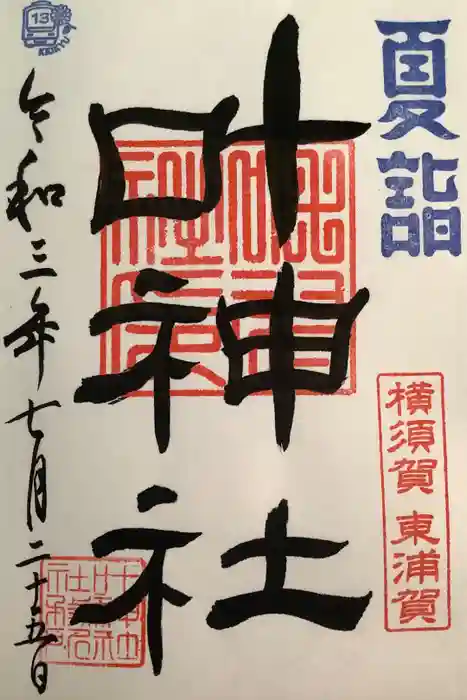 夏詣
横須賀 東浦賀
叶神社
令和三年七月二十五日
13
KEIKYU